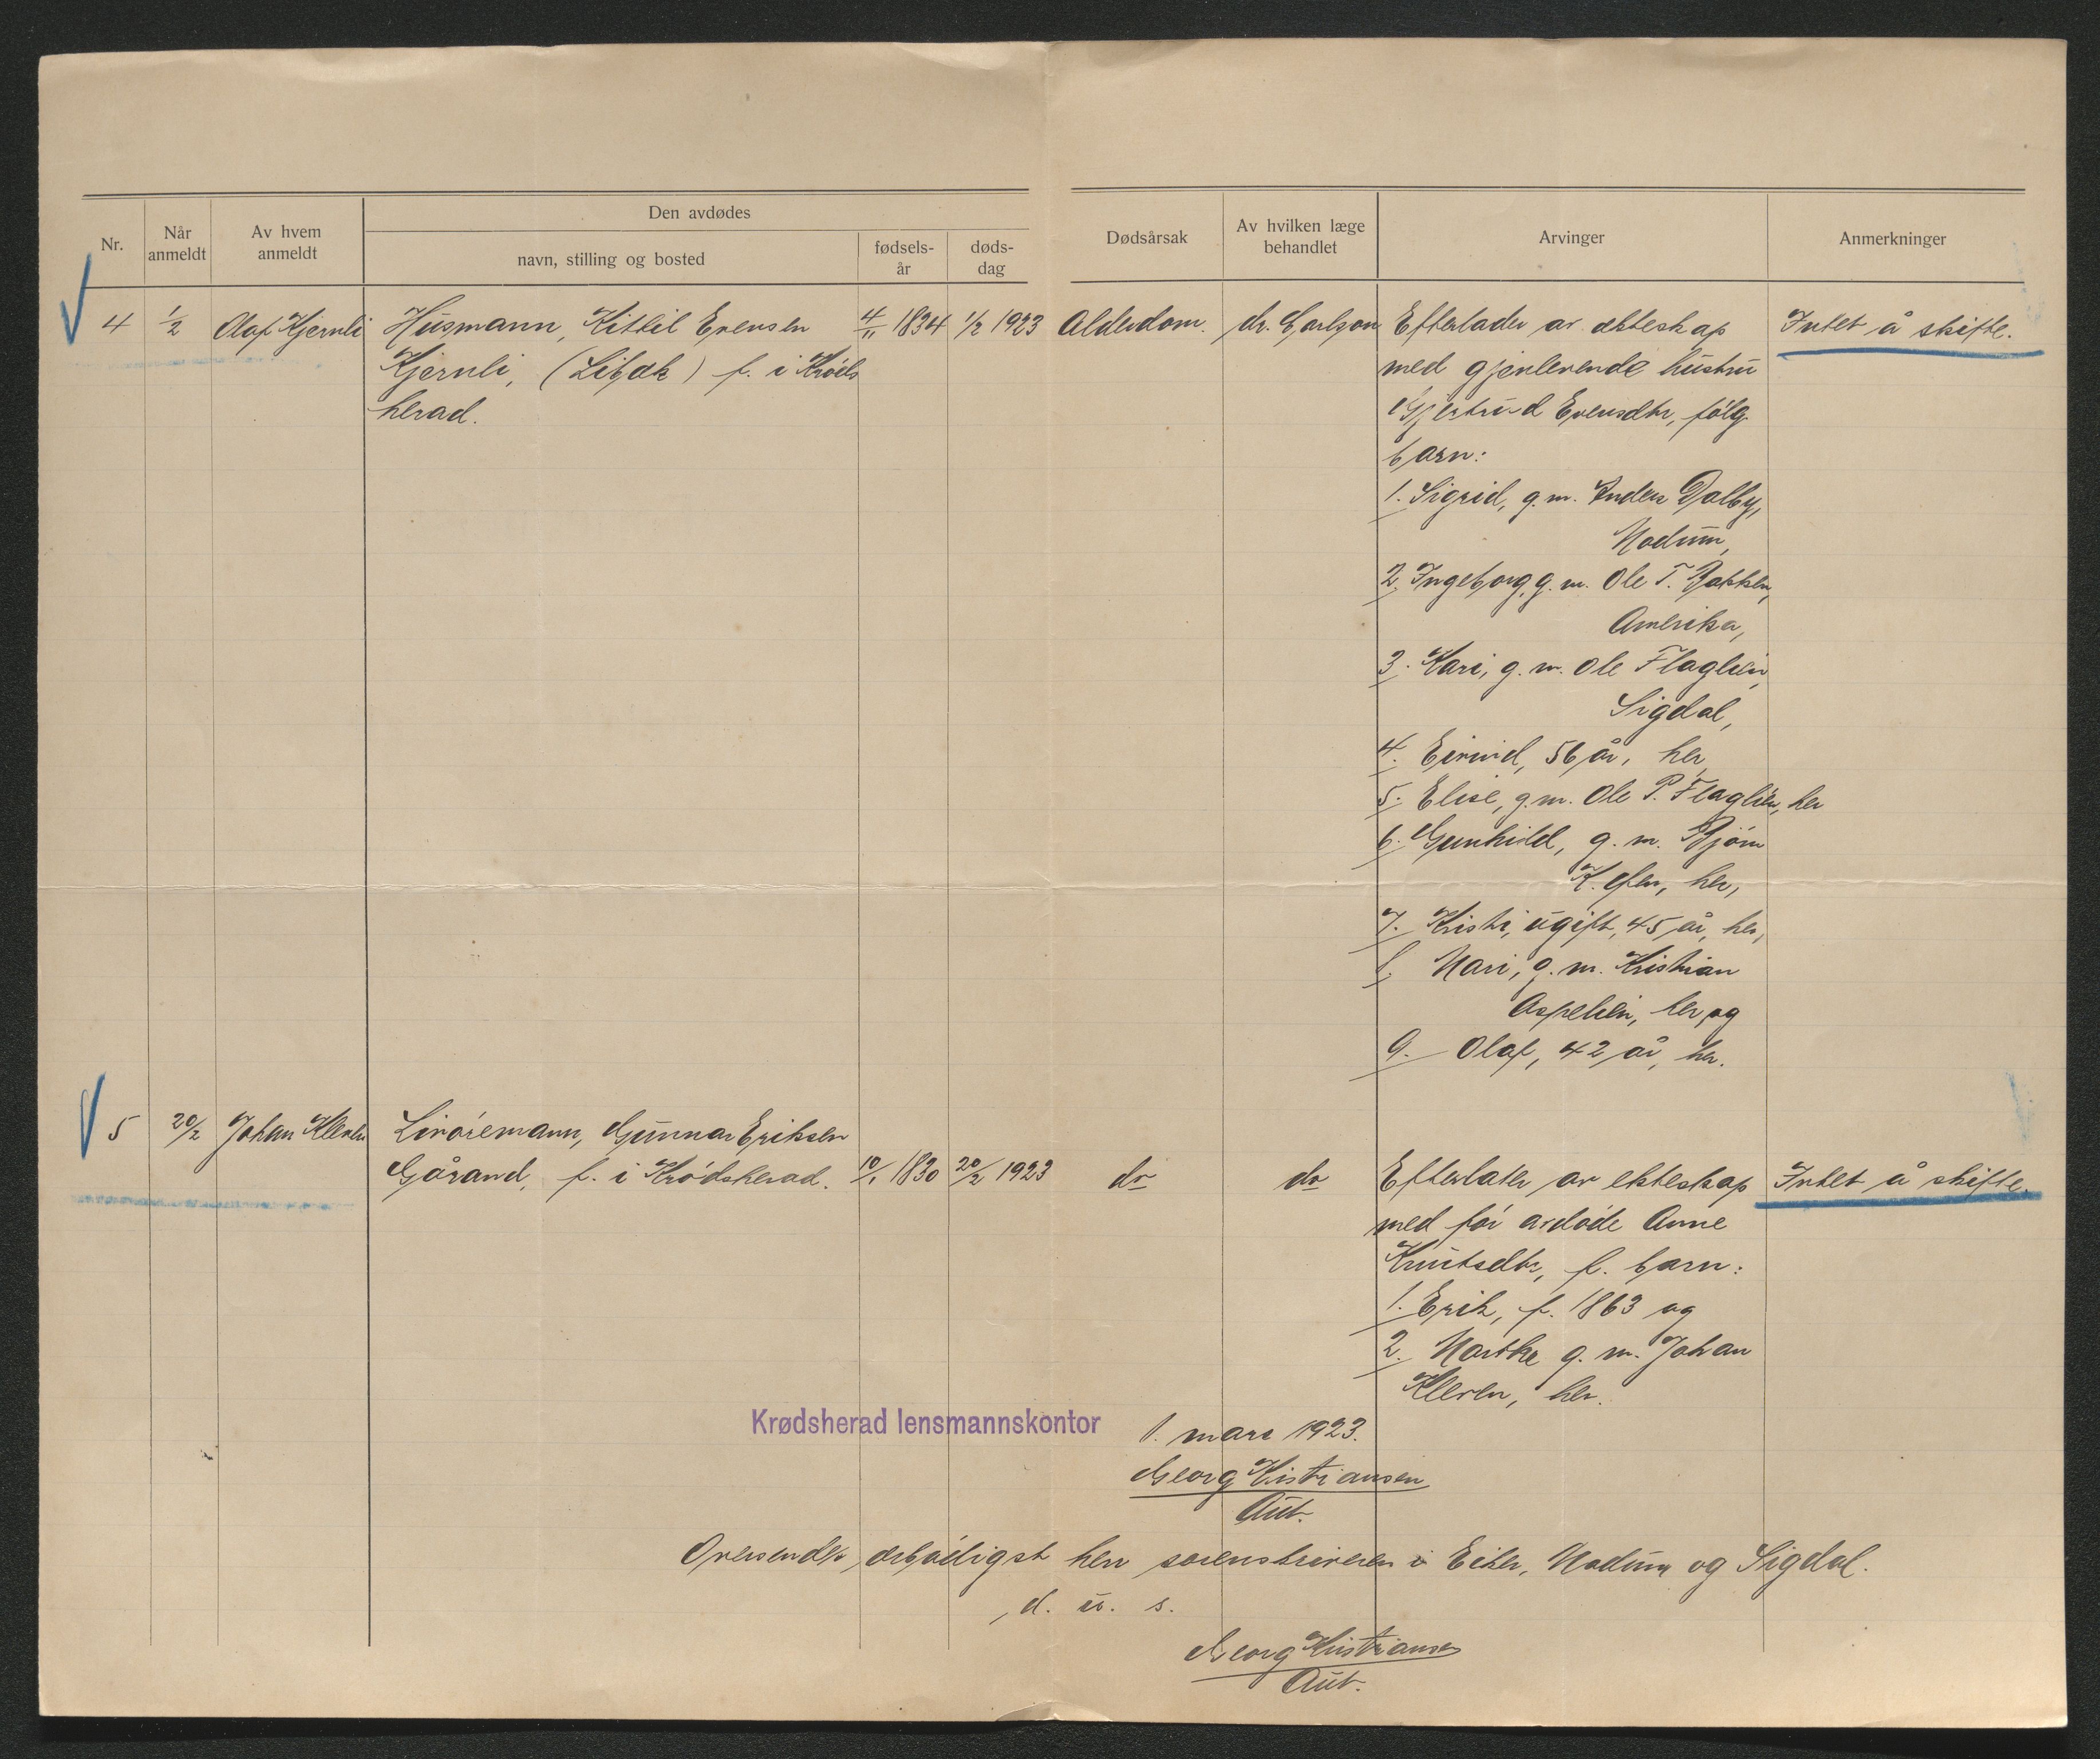 Nr.
Når anmeldt
Av hvem anmeldt
Den avdødes
navn, stilling og bosted
fødsels-år
døds-dag
Dødsårsak
Av hvilken læge behandlet
Arvinger
Anmerkninger
4 1/2 Olaf Kjernli Husmann, Kittil Evensen 4/11 1834 1/2 1923 Alderdom. dr. Carlson Efterlader av ekteskap Intet å skifte.
Kjernli, (Libæk) f. i Krøds med gjenlevende hustru
herad. Gjertrud Evensdtr, følg.
barn:
1. Sigrid, g.m. Anders Dalby,
Modum,
2. Ingeborg, g.m. Ole T. Bakken,
Amerika,
3. Kari, g.m. Ole Flaglien,
Sigdal,
4. Eivind, 56 år, her,
5. Elise, g.m. Ole P. Flaglien, her
6. Gunhild, g.m. Bjørn
K. her,
7. Kristi, ugift, 45 år, her,
8. Mari, g.m. Kristian
Aspelien, her og
9. Olaf, 42 år, her.
5 20/2 Johan Kleven Livøremann, Gunnar Eriksen
Gårand, f. i Krødsherad. 10/1 1830 20/2 1923 do do Efterlater av ekteskap Intet å skifte.
med før avdøde Anne
Knutsdtr, f. barn:
1. Erik, f. 1863 og
2. Marthe g.m. Johan
Kleven, her.
Krødsherad lensmannskontor 1. mars 1923.
Georg Kristiansen
Aut.
Oversendes ærbødigst herr sorenskriveren i Eiker, Modum og Sigdal.
d. u. s.
Georg Kristiansen
Aut.